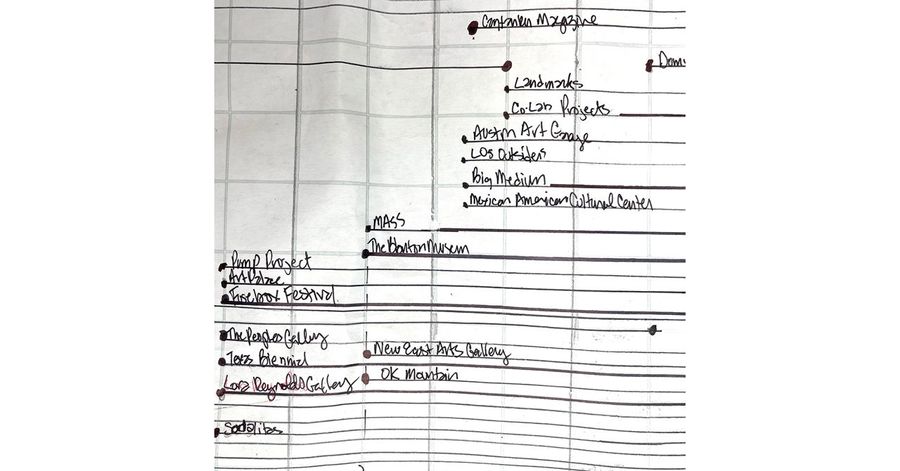 Magazine
Dom
Landmarks
Co-Lab Projects
Austin Art Garage
Los Outsiders
Big Medium
Mexican American Cultural Center
MASS
The Blanton Museum
Pump Project
Art Palace
Firebox Festival
The Peoples Gallery
Texas Biennial
New East Arts Gallery
OK Mountain
Lora Reynolds Gallery
Sodalitas